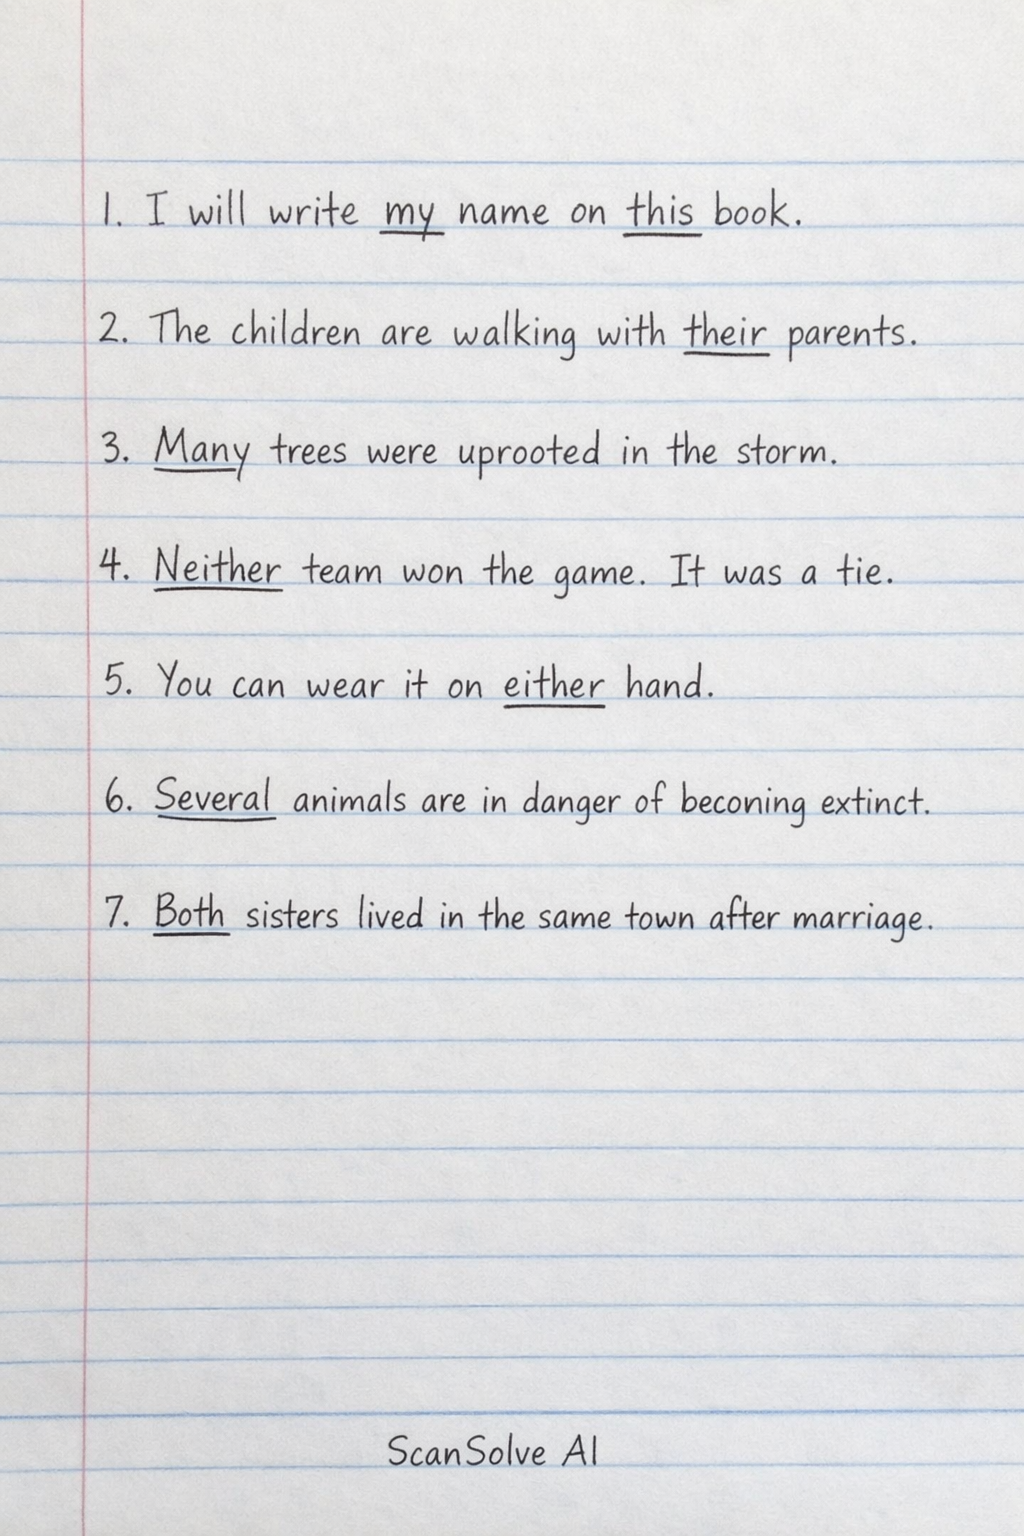 1. I will write my name on this book.
2. The children are walking with their parents.
3. Many trees were uprooted in the storm.
4. Neither team won the game. It was a tie.
5. You can wear it on either hand.
6. Several animals are in danger of beconing extinct.
7. Both sisters lived in the same town after marriage.
ScanSolve AI